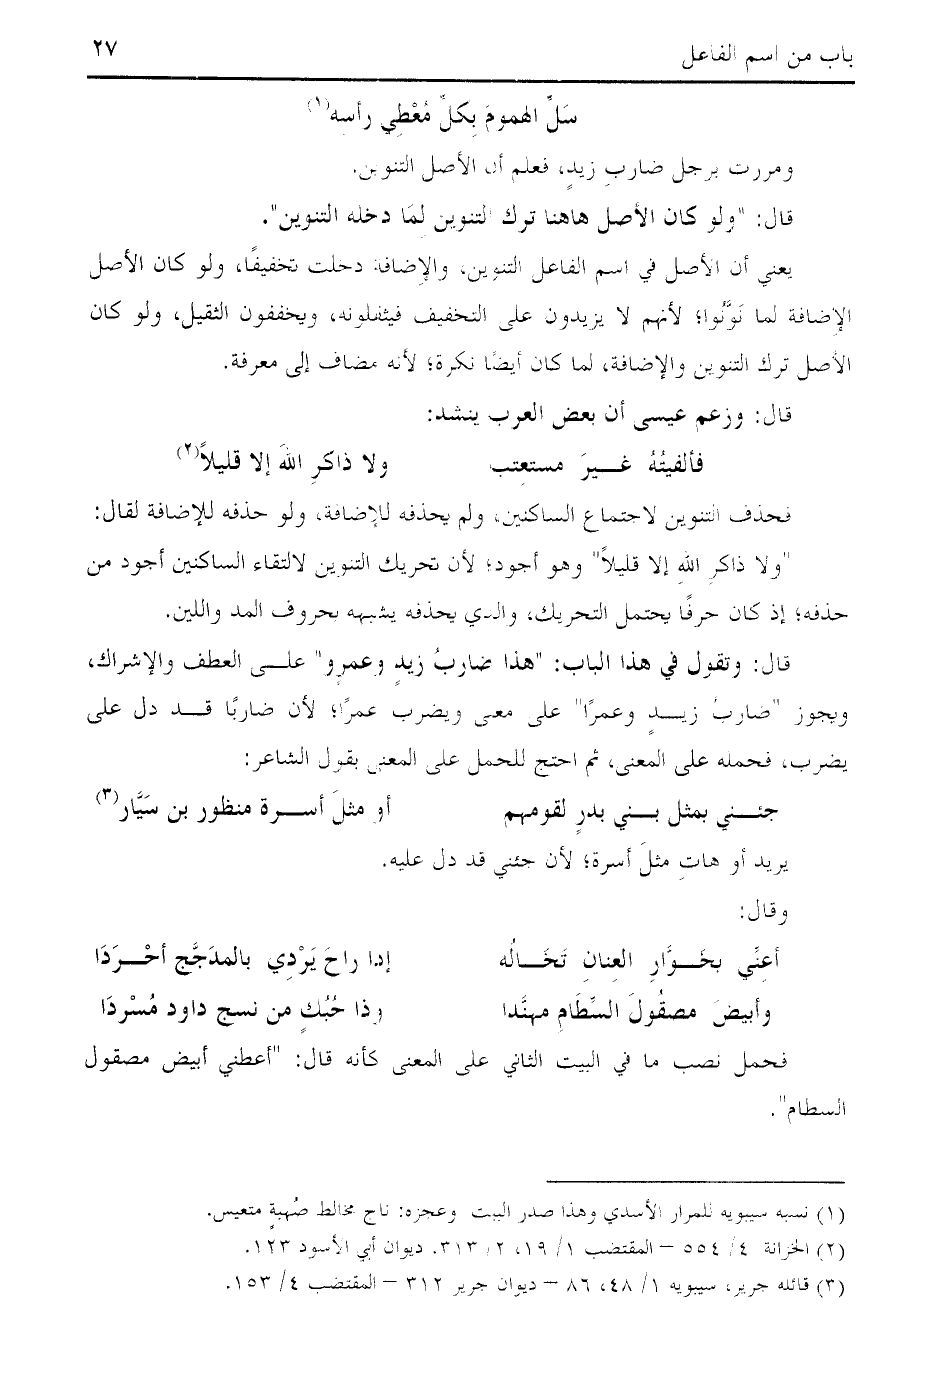 باب من اسم الفاعل ٢٧
سَلِّ الهمومَ بِكلِّ مُعْطِي رأسه(١)
ومررت برجل ضاربِ زيدٍ، فعلم أن الأصل التنوين.
قال: "ولو كان الأصل هاهنا ترك التنوين لَمَا دخله التنوين".
يعني أن الأصل في اسم الفاعل التنوين، والإضافة دخلت تخفيفًا، ولو كان الأصل
الإضافة لما نَوَّنُوا؛ لأنهم لا يزيدون على التخفيف فيثقلونه، ويخففون الثقيل، ولو كان
الأصل ترك التنوين والإضافة، لما كان أيضًا نكرة؛ لأنه مضاف إلى معرفة.
قال: وزعم عيسى أن بعض العرب ينشد:
فألفيتُهُ غيرَ مستعتِب ولا ذاكرِ اللهَ إلا قليلاً(٢)
فحذف التنوين لاجتماع الساكنين، ولم يحذفه للإضافة، ولو حذفه للإضافة لقال:
"ولا ذاكرِ اللهِ إلا قليلاً" وهو أجود؛ لأن تحريك التنوين لالتقاء الساكنين أجود من
حذفه؛ إذ كان حرفًا يحتمل التحريك، والذي يحذفه يشبهه بحروف المد واللين.
قال: وتقول في هذا الباب: "هذا ضاربُ زيدٍ وعمرٍو" على العطف والإشراك،
ويجوز "ضاربُ زيدٍ وعمرًا" على معنى ويضرب عمرًا؛ لأن ضاربًا قد دل على
يضرب، فحمله على المعنى، ثم احتج للحمل على المعنى بقول الشاعر:
جئني بمثل بني بدرٍ لقومهم أو مثلَ أسرة منظور بن سَيَّار(٣)
يريد أو هاتِ مثلَ أسرة؛ لأن جئني قد دل عليه.
وقال:
أعنِّي بخَوَّارِ العنانِ تَخَالُه إذا راحَ يَرْدِي بالمدَجَّج أحْرَدَا
وأبيضَ مصقُولَ السِّطَامِ مهنَّدا وذا حُبُكٍ من نسج داود مُسْرَدَا
فحمل نصب ما في البيت الثاني على المعنى كأنه قال: "أعطني أبيض مصقول
السطام".
(١) نسبه سيبويه للمرار الأسدي وهذا صدر البيت وعجزه: ناج مخالط صُهبةٍ متعيس.
(٢) الخزانة ٤/ ٥٥٤ – المقتضب ١/ ١٩، ٢/ ٣١٣. ديوان أبي الأسود ١٢٣.
(٣) قائله جرير، سيبويه ١/ ٤٨، ٨٦ – ديوان جرير ٣١٢ – المقتضب ٤/ ١٥٣.